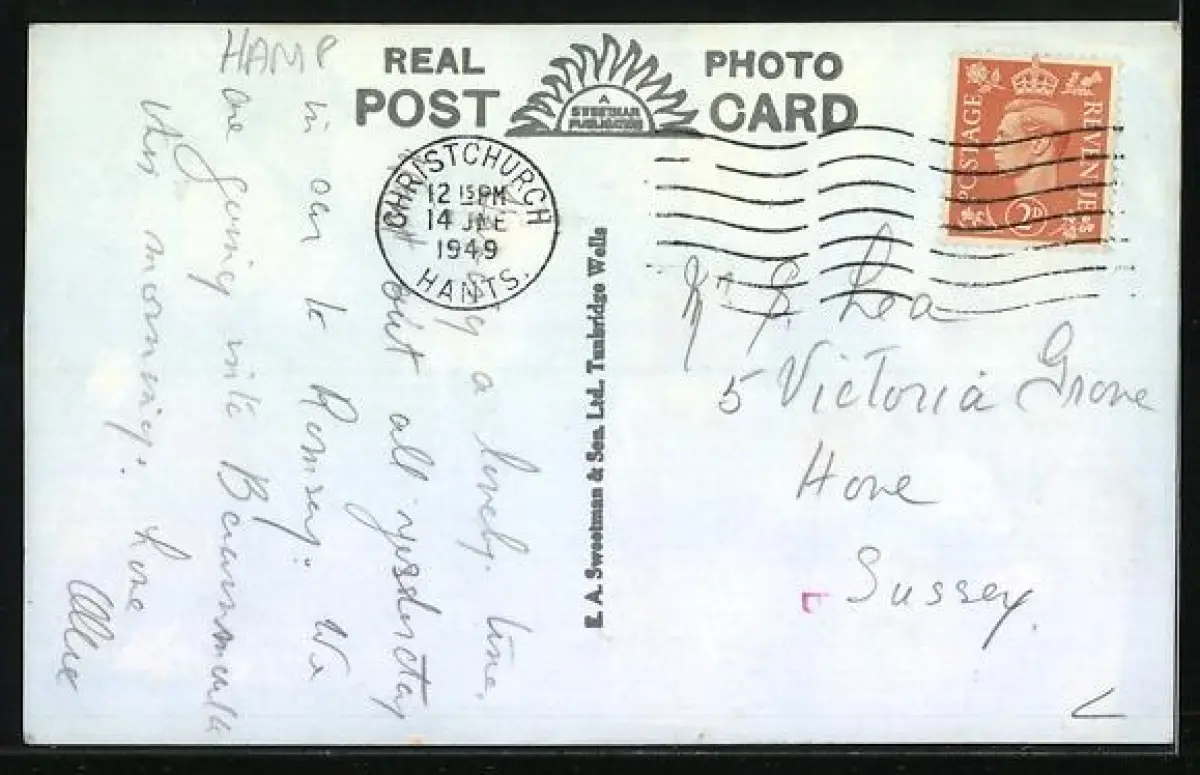 HAMP
REAL PHOTO
POST CARD
A
SWEETMAN
PUBLICATION
POSTAGE REVENUE
2D
CHRISTCHURCH
12 15 PM
14 JNE
1949
HANTS.
a lovely time,
out all yesderday
in car to Romsey. We
are going into Bournmouth
this morning. Love
E. A. Sweetman & Son. Ltd. Tunbridge Wells
Lea
5 Victoria Grove
Hove
Sussex.
L